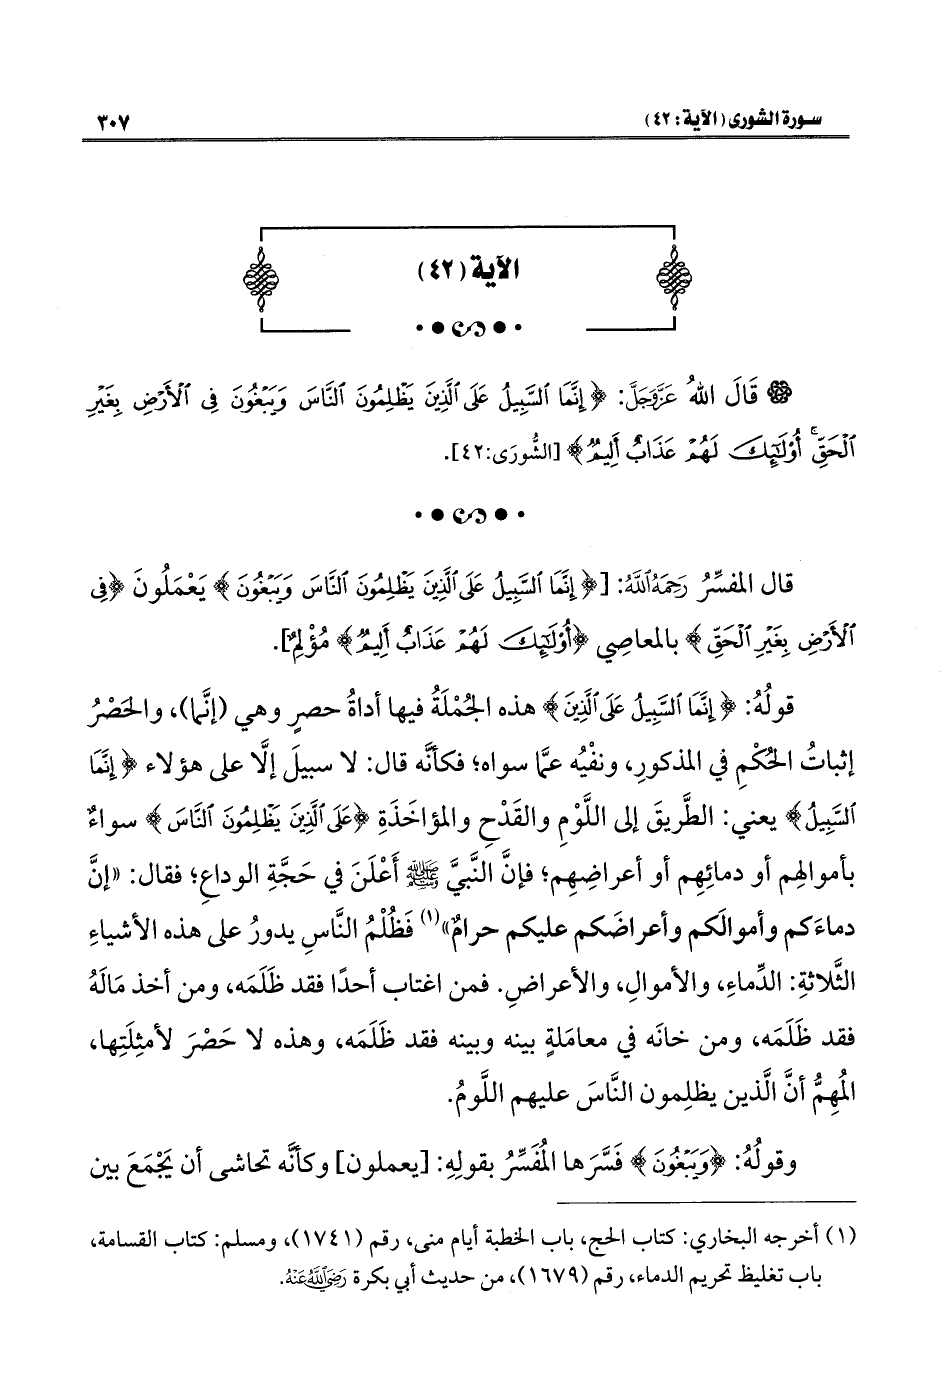 سورة الشورى (الآية: ٤٢) ٣٠٧
الآية (٤٢)
قَالَ اللهُ عَزَّوَجَلَّ: ﴿إِنَّمَا ٱلسَّبِيلُ عَلَى ٱلَّذِينَ يَظْلِمُونَ ٱلنَّاسَ وَيَبْغُونَ فِى ٱلْأَرْضِ بِغَيْرِ
ٱلْحَقِّ ۚ أُو۟لَٰٓئِكَ لَهُمْ عَذَابٌ أَلِيمٌ﴾ [الشُّورَى:٤٢].
قال المفسِّرُ رَحِمَهُ ٱللَّهُ: [﴿إِنَّمَا ٱلسَّبِيلُ عَلَى ٱلَّذِينَ يَظْلِمُونَ ٱلنَّاسَ وَيَبْغُونَ﴾ يَعْمَلُونَ ﴿فِى
ٱلْأَرْضِ بِغَيْرِ ٱلْحَقِّ﴾ بالمعاصِي ﴿أُو۟لَٰٓئِكَ لَهُمْ عَذَابٌ أَلِيمٌ﴾ مُؤْلِمٌ].
قولُهُ: ﴿إِنَّمَا ٱلسَّبِيلُ عَلَى ٱلَّذِينَ﴾ هذه الجُمْلَةُ فيها أداةُ حصرٍ وهي (إنَّما)، والحَصْرُ
إثباتُ الحُكْمِ في المذكورِ، ونفْيُه عمَّا سواه؛ فكأنَّه قال: لا سبيلَ إلَّا على هؤلاء ﴿إِنَّمَا
ٱلسَّبِيلُ﴾ يعني: الطَّريق إلى اللَّوْمِ والقَدْحِ والمؤاخَذَةِ ﴿عَلَى ٱلَّذِينَ يَظْلِمُونَ ٱلنَّاسَ﴾ سواءٌ
بأموالهِم أو دمائِهِم أو أعراضِهِم؛ فإنَّ النَّبيَّ ﷺ أَعْلَنَ في حَجَّةِ الوداعِ؛ فقال: «إنَّ
دماءَكم وأموالَكم وأعراضَكم عليكم حرامٌ»(١) فَظُلْمُ النَّاسِ يدورُ على هذه الأشياءِ
الثَّلاثةِ: الدِّماءِ، والأموالِ، والأعراضِ. فمن اغتاب أحدًا فقد ظَلَمَه، ومن أخذ مَالَهُ
فقد ظَلَمَه، ومن خانَه في معامَلةٍ بينه وبينه فقد ظَلَمَه، وهذه لا حَصْرَ لأمثِلَتِها،
المُهِمُّ أنَّ الَّذين يظلِمون النَّاسَ عليهم اللَّومُ.
وقولُهُ: ﴿وَيَبْغُونَ﴾ فَسَّرَها المُفَسِّرُ بقولِهِ: [يعملون] وكأنَّه تحاشى أن يَجْمَعَ بين
(١) أخرجه البخاري: كتاب الحج، باب الخطبة أيام منى، رقم (١٧٤١)، ومسلم: كتاب القسامة،
باب تغليظ تحريم الدماء، رقم (١٦٧٩)، من حديث أبي بكرة رَضِيَ ٱللَّهُ عَنْهُ.